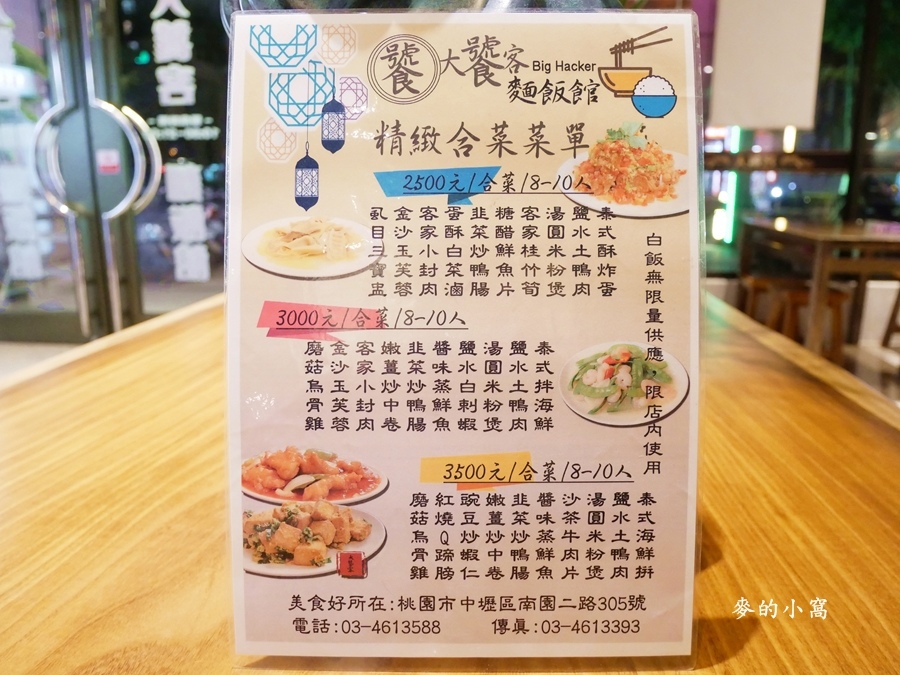 饕
大饕客
Big Hacker
麵飯館
精緻合菜菜單
2500元/合菜/8-10人
泰式酥炸蛋
鹽水土鴨肉
湯圓米粉煲
客家桂竹筍
糖醋鮮魚片
韭菜炒鴨腸
蛋酥白菜滷
客家小封肉
金沙玉芙蓉
虱目三寶盅
白飯無限量供應，限店內使用
3000元/合菜/8-10人
泰式拌海鮮
鹽水土鴨肉
湯圓米粉煲
鹽水白刺蝦
醬味蒸鮮魚
韭菜炒鴨腸
嫩薑炒中卷
客家小封肉
金沙玉芙蓉
磨菇烏骨雞
3500元/合菜/8-10人
泰式海鮮拼
鹽水土鴨肉
湯圓米粉煲
沙茶牛肉片
醬味蒸鮮魚
韭菜炒鴨腸
嫩薑炒中卷
豌豆炒蝦仁
紅燒Q蹄膀
磨菇烏骨雞
美食好所在:桃園市中壢區南園二路305號
電話:03-4613588 傳真:03-4613393
麥的小窩